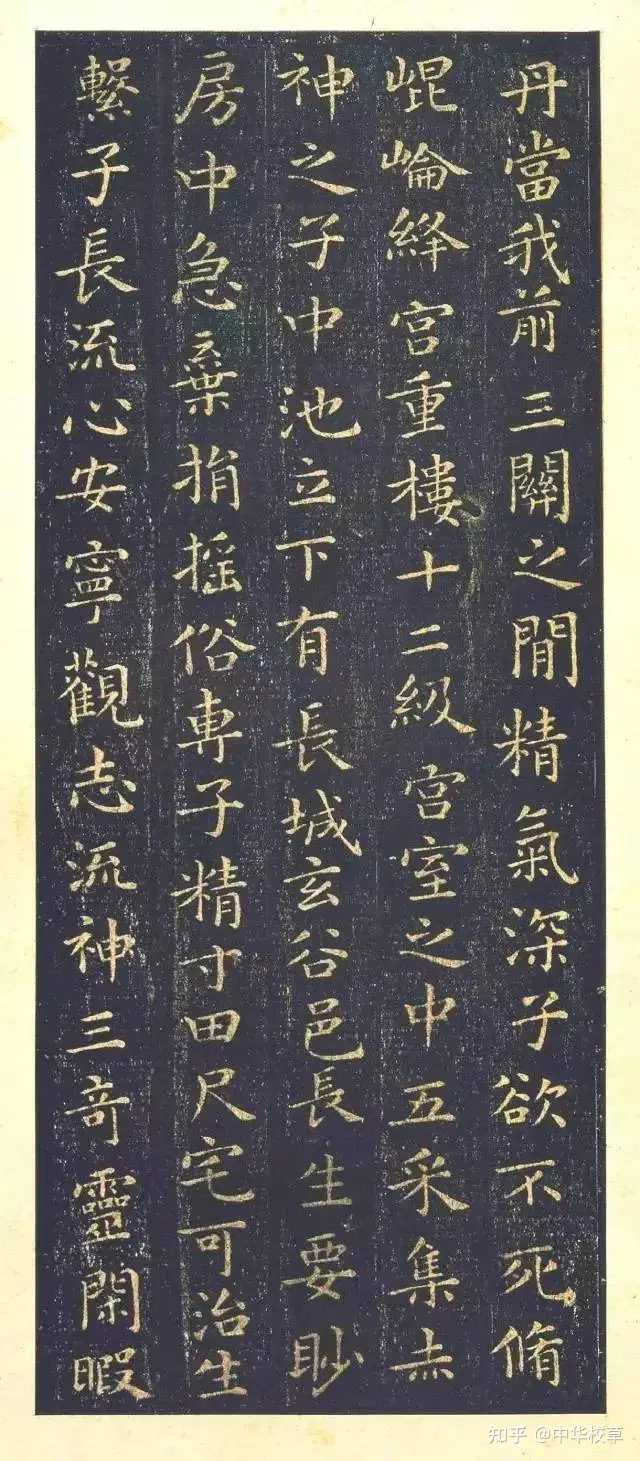 丹當我前三關之間精氣深子欲不死脩
崐崘絳宮重樓十二級宮室之中五采集赤
神之子中池立下有長城玄谷邑長生要眇
房中急棄捐搖俗專子精寸田尺宅可治生
繫子長流心安寧觀志流神三奇靈閑暇
知乎 @中华校草